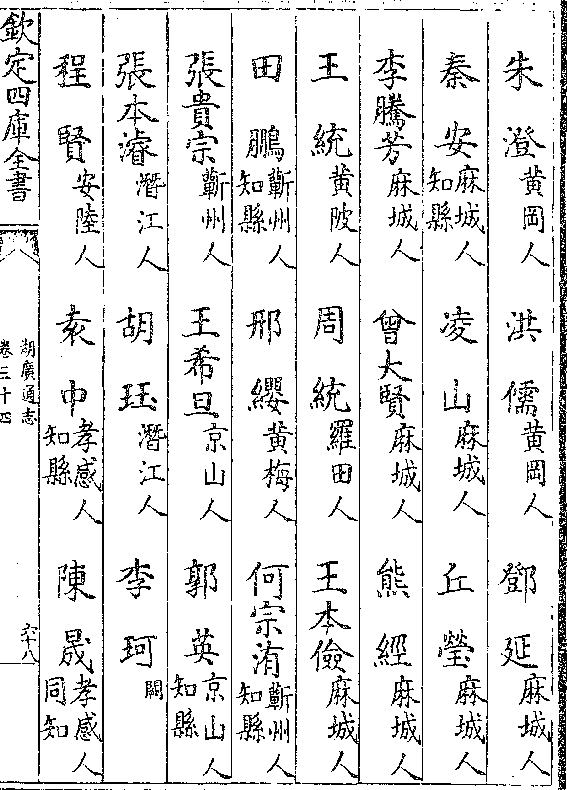 朱澄黄岡人　洪儒黄岡人　鄧延麻城人
秦安麻城人知縣　凌山麻城人　丘瑩麻城人
李騰芳麻城人　曾大賢麻城人　熊經麻城人
王統黄陂人　周統羅田人　王本儉麻城人
田鵬蘄州人知縣　邢纓黄梅人　何宗洧蘄州人知縣
張貴宗蘄州人　王希旦京山人　郭英京山人知縣
張本濬潛江人　胡珏潛江人　李珂闕
程賢安陸人　袁中孝感人知縣　陳晟孝感人同知
欽定四庫全書
湖廣通志
卷三十四
六十八